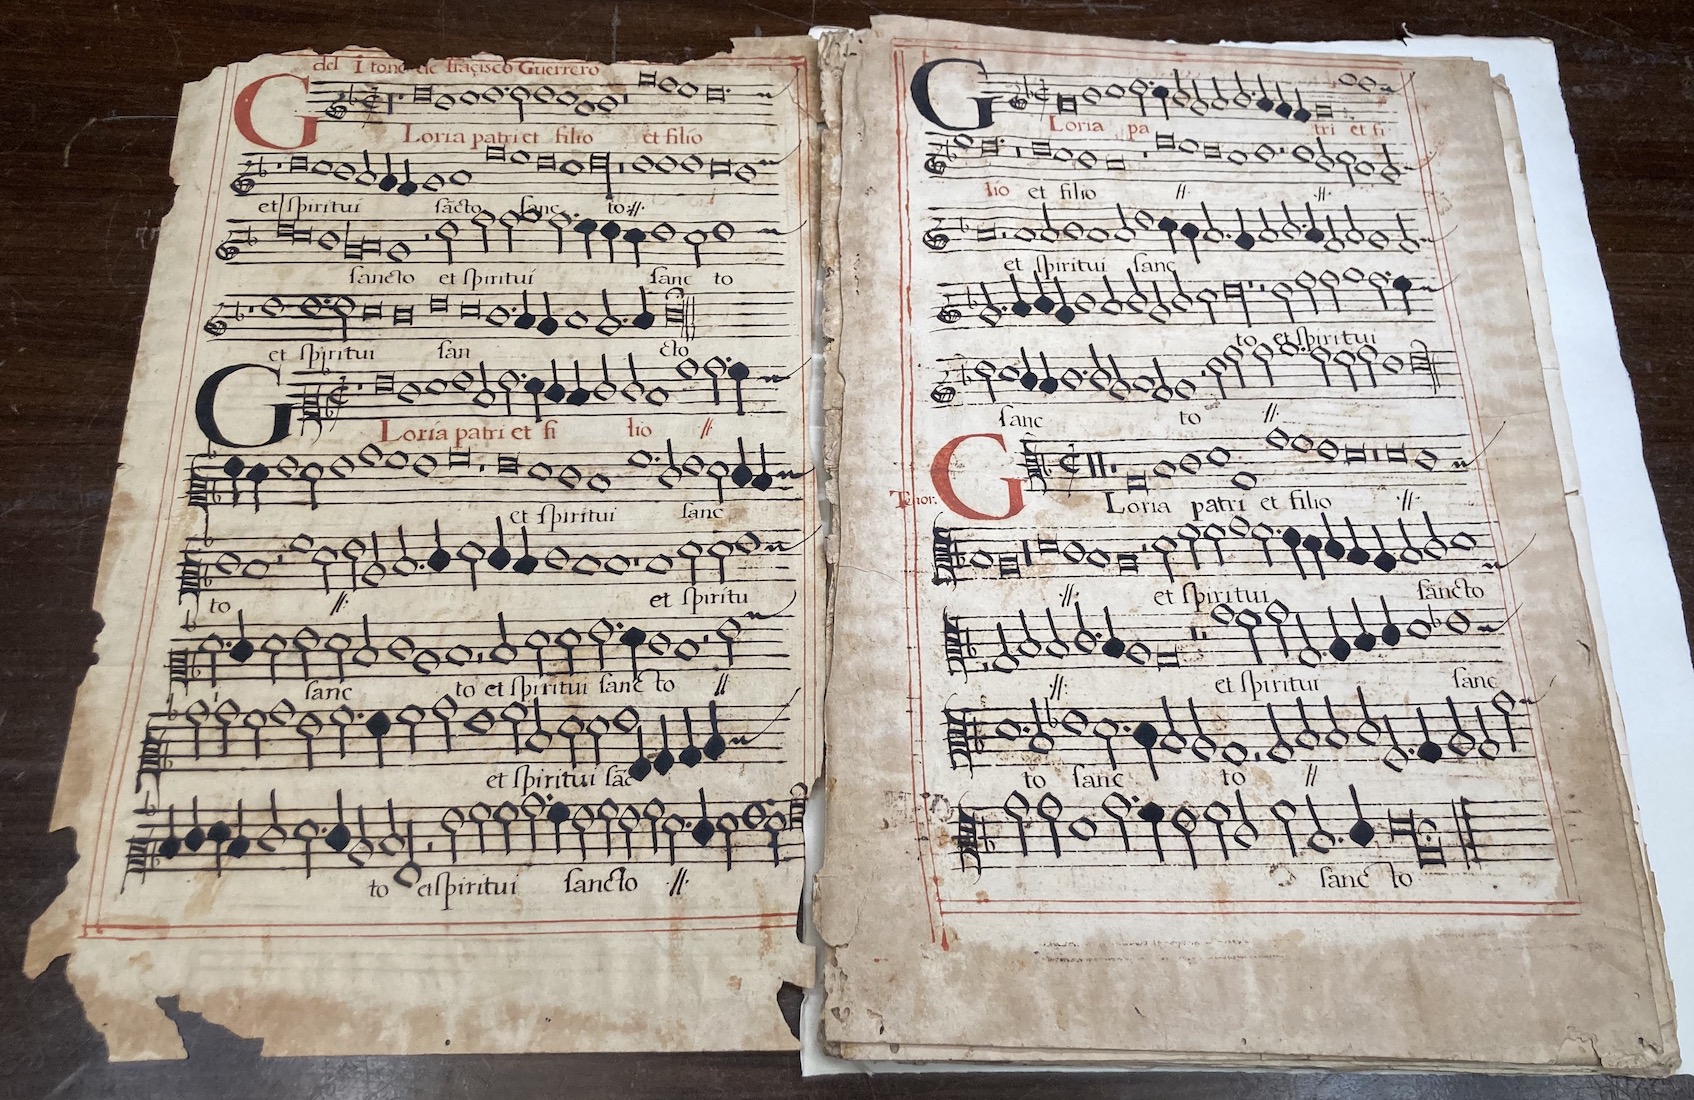 del I tono de Frācisco Guerrero
GLoria patri et filio et filio
et spiritui sācto sanc to :||:
sancto et spiritui sanc to
et spiritui san cto
GLoria patri et fi lio ||:
et spiritui sanc
to ||: et spiritu
sanc to et spiritui sanc to ||
et spiritui sāc
to et spiritui sancto :||:
GLoria pa tri et fi
lio et filio :||: :||:
et spiritui sanc
to et spiritui
sanc to ||:
Tenor.
GLoria patri et filio :||:
:||: et spiritui sancto
:||: et spiritui sanc
to sanc to ||
sanc to